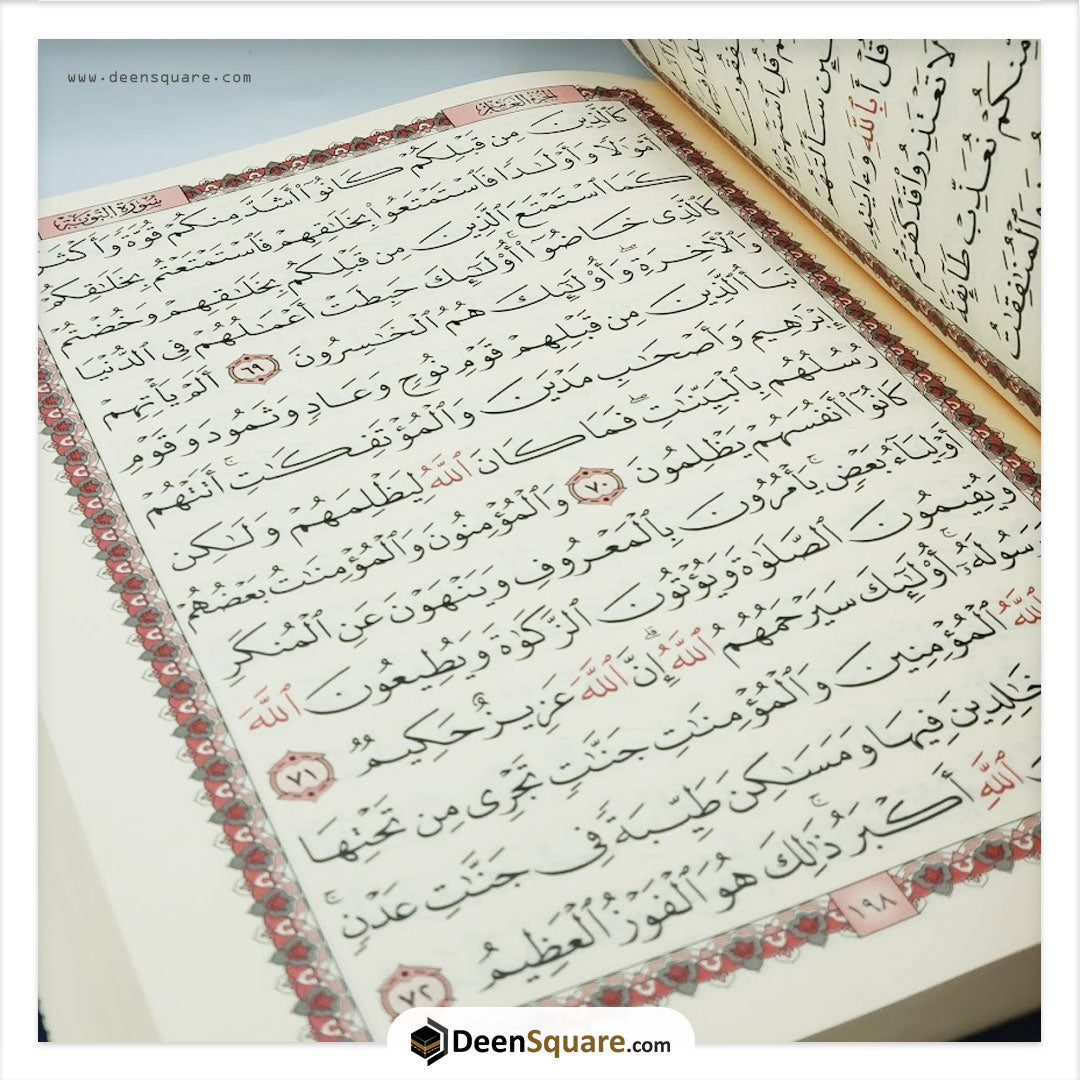 www.deensquare.com
الجزء العاشر
سورة التوبة
كَٱلَّذِينَ مِن قَبۡلِكُمۡ كَانُوٓاْ أَشَدَّ مِنكُمۡ قُوَّةٗ وَأَكۡثَرَ
أَمۡوَٰلٗا وَأَوۡلَٰدٗا فَٱسۡتَمۡتَعُواْ بِخَلَٰقِهِمۡ فَٱسۡتَمۡتَعۡتُم بِخَلَٰقِكُمۡ
كَمَا ٱسۡتَمۡتَعَ ٱلَّذِينَ مِن قَبۡلِكُم بِخَلَٰقِهِمۡ وَخُضۡتُمۡ
كَٱلَّذِي خَاضُوٓاْۚ أُوْلَٰٓئِكَ حَبِطَتۡ أَعۡمَٰلُهُمۡ فِي ٱلدُّنۡيَا
وَٱلۡأٓخِرَةِۖ وَأُوْلَٰٓئِكَ هُمُ ٱلۡخَٰسِرُونَ ٦٩ أَلَمۡ يَأۡتِهِمۡ
نَبَأُ ٱلَّذِينَ مِن قَبۡلِهِمۡ قَوۡمِ نُوحٖ وَعَادٖ وَثَمُودَ وَقَوۡمِ
إِبۡرَٰهِيمَ وَأَصۡحَٰبِ مَدۡيَنَ وَٱلۡمُؤۡتَفِكَٰتِۚ أَتَتۡهُمۡ
رُسُلُهُم بِٱلۡبَيِّنَٰتِۖ فَمَا كَانَ ٱللَّهُ لِيَظۡلِمَهُمۡ وَلَٰكِن
كَانُوٓاْ أَنفُسَهُمۡ يَظۡلِمُونَ ٧٠ وَٱلۡمُؤۡمِنُونَ وَٱلۡمُؤۡمِنَٰتُ بَعۡضُهُمۡ
أَوۡلِيَآءُ بَعۡضٖۚ يَأۡمُرُونَ بِٱلۡمَعۡرُوفِ وَيَنۡهَوۡنَ عَنِ ٱلۡمُنكَرِ
وَيُقِيمُونَ ٱلصَّلَوٰةَ وَيُؤۡتُونَ ٱلزَّكَوٰةَ وَيُطِيعُونَ ٱللَّهَ
وَرَسُولَهُۥٓۚ أُوْلَٰٓئِكَ سَيَرۡحَمُهُمُ ٱللَّهُۗ إِنَّ ٱللَّهَ عَزِيزٌ حَكِيمٞ ٧١
ٱللَّهُ ٱلۡمُؤۡمِنِينَ وَٱلۡمُؤۡمِنَٰتِ جَنَّٰتٖ تَجۡرِي مِن تَحۡتِهَا
خَٰلِدِينَ فِيهَا وَمَسَٰكِنَ طَيِّبَةٗ فِي جَنَّٰتِ عَدۡنٖۚ
ٱللَّهِ أَكۡبَرُۚ ذَٰلِكَ هُوَ ٱلۡفَوۡزُ ٱلۡعَظِيمُ ٧٢
١٩٨
قُلۡ أَبِٱللَّهِ
لَا تَعۡتَذِرُواْ قَدۡ كَفَرۡتُم
مِنكُمۡ نُعَذِّبۡ طَآئِفَةَۢ
وَٱلۡمُنَٰفِقَٰتُ
DeenSquare.com